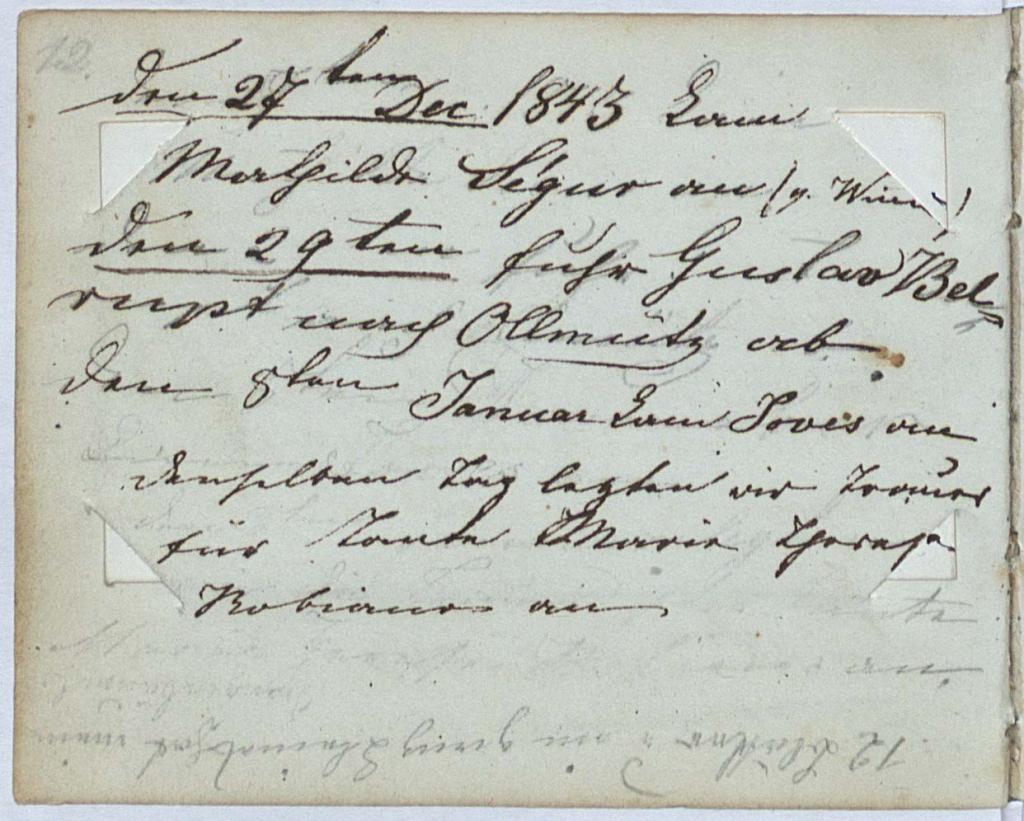 12.
den 27ten Dec 1843 kam
Mathilde Ségur an (v. Wien)
den 29ten fuhr Gustav Bel=
rupt nach Ollmütz ab
den 8ten Januar kam Joves an
denselben Tag legten wir Trauer
für Tante Marie Theres
Robiano an